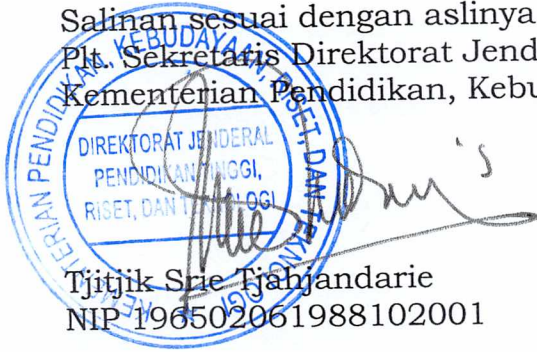 Salinan sesuai dengan aslinya
Plt. Sekretaris Direktorat Jend
Kementerian Pendidikan, Kebu
KEMENTERIAN PENDIDIKAN, KEBUDAYAAN, RISET, DAN TEKNOLOGI
DIREKTORAT JENDERAL
PENDIDIKAN TINGGI,
RISET, DAN TEKNOLOGI
Tjitjik Srie Tjahjandarie
NIP 196502061988102001